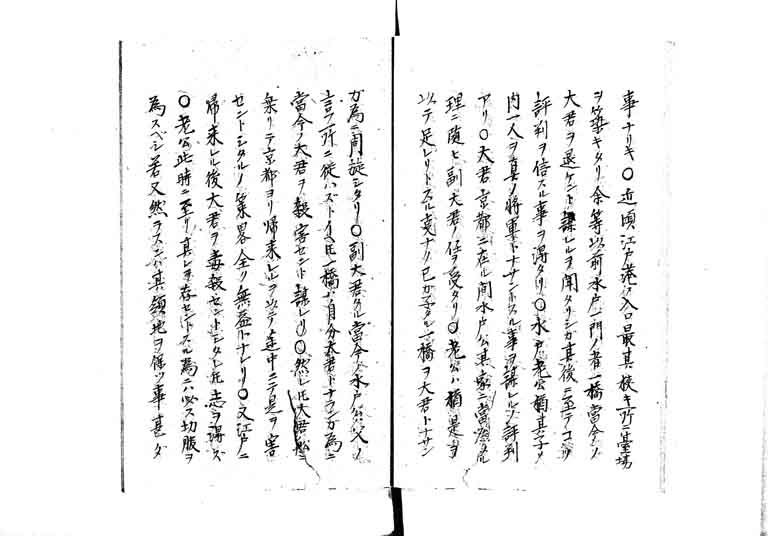 事ナリキ〇近頃江戸港ノ入口最其狭キ所ニ臺場
ヲ築キタリ余等以前水戸一門ノ者一橋當今ノ
大君ヲ退ケント謀レルヲ聞タリシカ其後ニ至テコノ
評判ヲ信スル事ヲ得タリ〇水戸ノ老公猶其子ノ
内一人ヲ真ノ将軍トナサントスル事ヲ謀レルノ評判
アリ〇大君京都ニ在ル間水戸公其家ニ當然タル
理ニ随ヒ副大君ノ任ヲ受タリ〇老公ハ猶是ヲ
以テ足レリトスル事ナク已カ子タル一橋ヲ大君トナサン
カ為ニ周旋シタリ〇副大君タル當今ノ水戸公父ノ
言フ所ニ従ハズトイヘ𪜈一橋ハ自分大君トナランカ為ニ
當今ノ大君ヲ殺害セント謀レリ〇然レ𪜈大君船ニ
乗リテ京都ヨリ帰来レルヲ以テ途中ニテ是ヲ害
セントシタルノ策畧全ク無益トナレリ〇又江戸ニ
帰来レル後大君ヲ毒殺セントシタレ𪜈志ヲ得ズ
〇老公此時ニ至リ其レヲ存セントスル為ニハ必ス切服ヲ
為スベシ若又然ラスンバ其領地ヲ保ツ事甚ダ